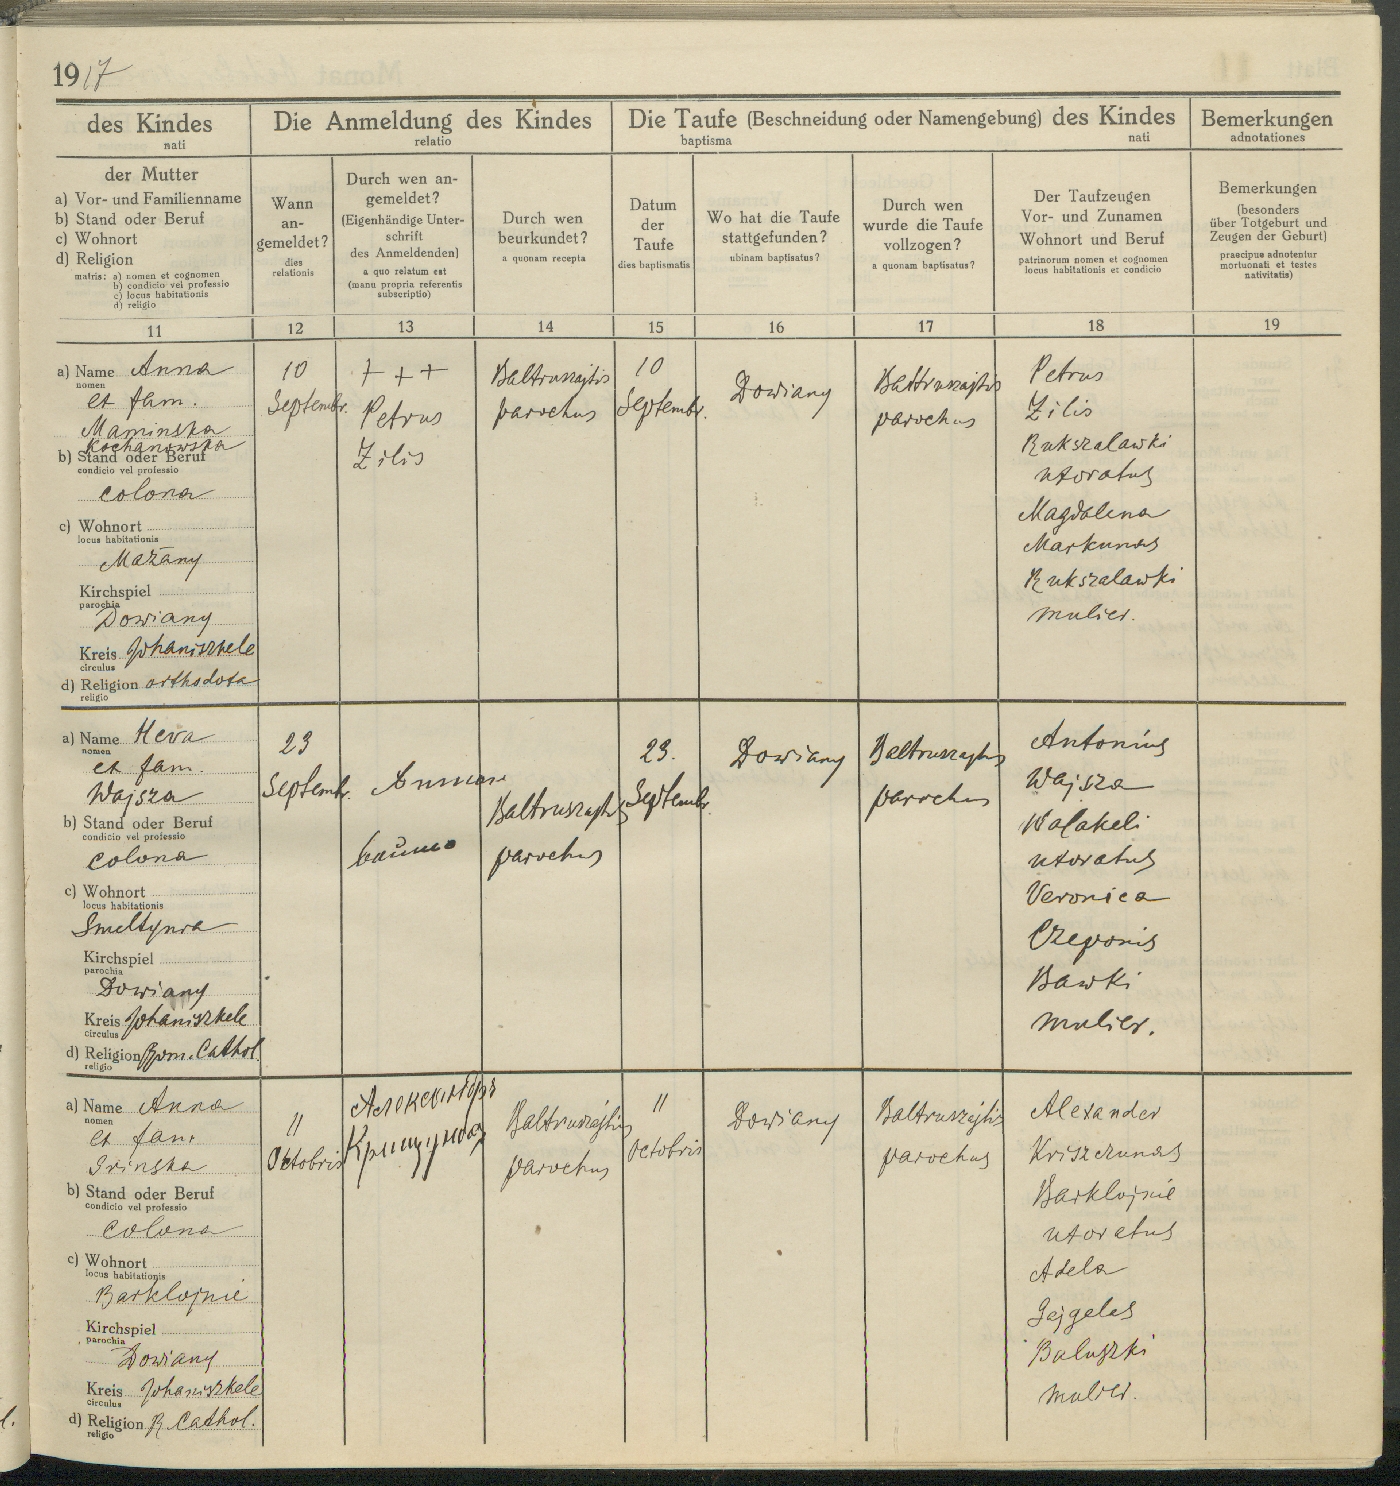 1917
des Kindes
nati
Die Anmeldung des Kindes
relatio
Die Taufe (Beschneidung oder Namengebung) des Kindes
baptisma nati
Bemerkungen
adnotationes
der Mutter
a) Vor- und Familienname
b) Stand oder Beruf
c) Wohnort
d) Religion
matris: a) nomen et cognomen
b) condicio vel professio
c) locus habitationis
d) religio
Wann
an-
gemeldet?
dies
relationis
Durch wen an-
gemeldet?
(Eigenhändige Unter-
schrift
des Anmeldenden)
a quo relatum est
(manu propria referentis
subscriptio)
Durch wen
beurkundet?
a quonam recepta
Datum
der
Taufe
dies baptismatis
Wo hat die Taufe
stattgefunden?
ubinam baptisatus?
Durch wen
wurde die Taufe
vollzogen?
a quonam baptisatus?
Der Taufzeugen
Vor- und Zunamen
Wohnort und Beruf
patrinorum nomen et cognomen
locus habitationis et condicio
Bemerkungen
(besonders
über Totgeburt und
Zeugen der Geburt)
praecipue adnotentur
mortuonati et testes
nativitatis)
11 12 13 14 15 16 17 18 19
a) Name Anna
nomen
et fam.
Maminska
Kochanowska
b) Stand oder Beruf
condicio vel professio
colona
c) Wohnort
locus habitationis
Mażany
Kirchspiel
parochia
Dowiany
Kreis Johaniszkele
circulus
d) Religion orthodoxa
religio
10
Septembr.
+ + +
Petrus
Zilis
Baltruszajtis
parochus
10
Septembr.
Dowiany
Baltruszajtis
parochus
Petrus
Zilis
Rukszalawki
uxoratus
Magdalena
Markunas
Rukszalawki
mulier.
a) Name Heva
nomen
et fam.
Wajsza
b) Stand oder Beruf
condicio vel professio
colona
c) Wohnort
locus habitationis
Smeltynia
Kirchspiel
parochia
Dowiany
Kreis Johaniszkele
circulus
d) Religion Rom. Cathol.
religio
23
Septembr.
Baltruszajtis
parochus
23.
Septembr.
Dowiany
Baltruszajtis
parochus
Antonius
Wajsza
Walakeli
uxoratus
Veronica
Czeponis
Bawki
mulier.
a) Name Anna
nomen
et fam.
Grinska
b) Stand oder Beruf
condicio vel professio
colona
c) Wohnort
locus habitationis
Barklojnie
Kirchspiel
parochia
Dowiany
Kreis Johaniszkele
circulus
d) Religion R. Cathol.
religio
11
Octobris
Александръ
Крищунас
Baltruszajtis
parochus
11
Octobris
Dowiany
Baltruszajtis
parochus
Alexander
Kriszczunas
Barklojnie
uxoratus
Adela
Gejgelas
Baluszki
mulier.